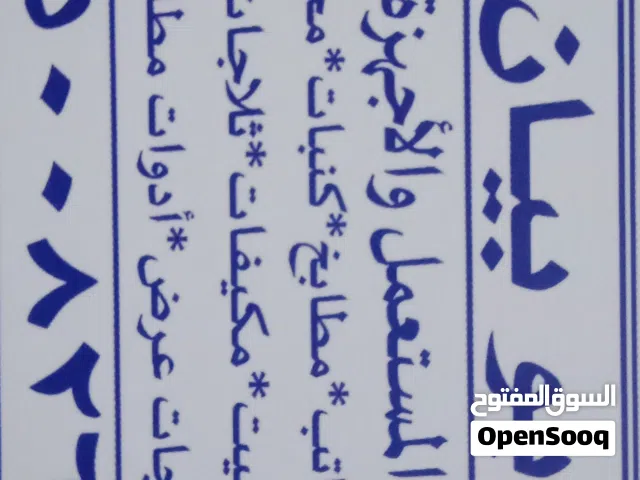 بو بيان
المستعمل والأجهزة
اتب * مطابخ * كنبات * مع
يت * مكيفات * ثلاجات
جات عرض * أدوات مط
٥٠٠٨٢
السوق المفتوح
OpenSooq